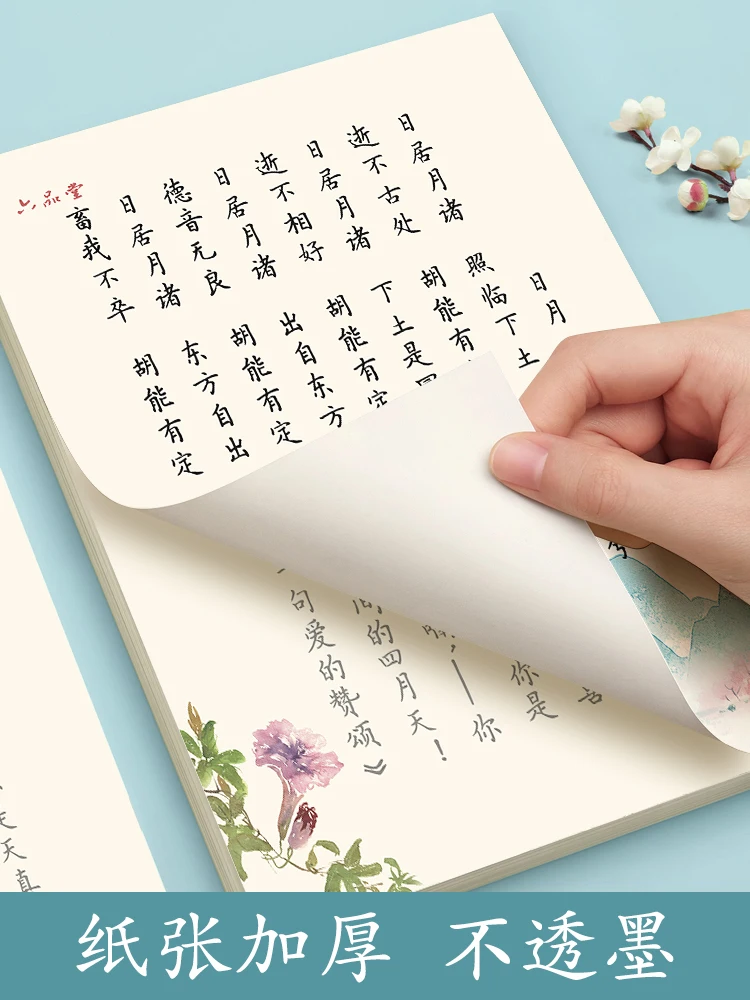 日月
日居月诸 照临下土
逝不古处 胡能有
日居月诸 下土是
逝不相好 胡能有定
日居月诸 出自东方
德音无良 胡能有定
日居月诸 东方自出
畜我不卒 胡能有定
六品堂
你是
,—你
的四月天!
句爱的赞颂》
天真
纸张加厚 不透墨